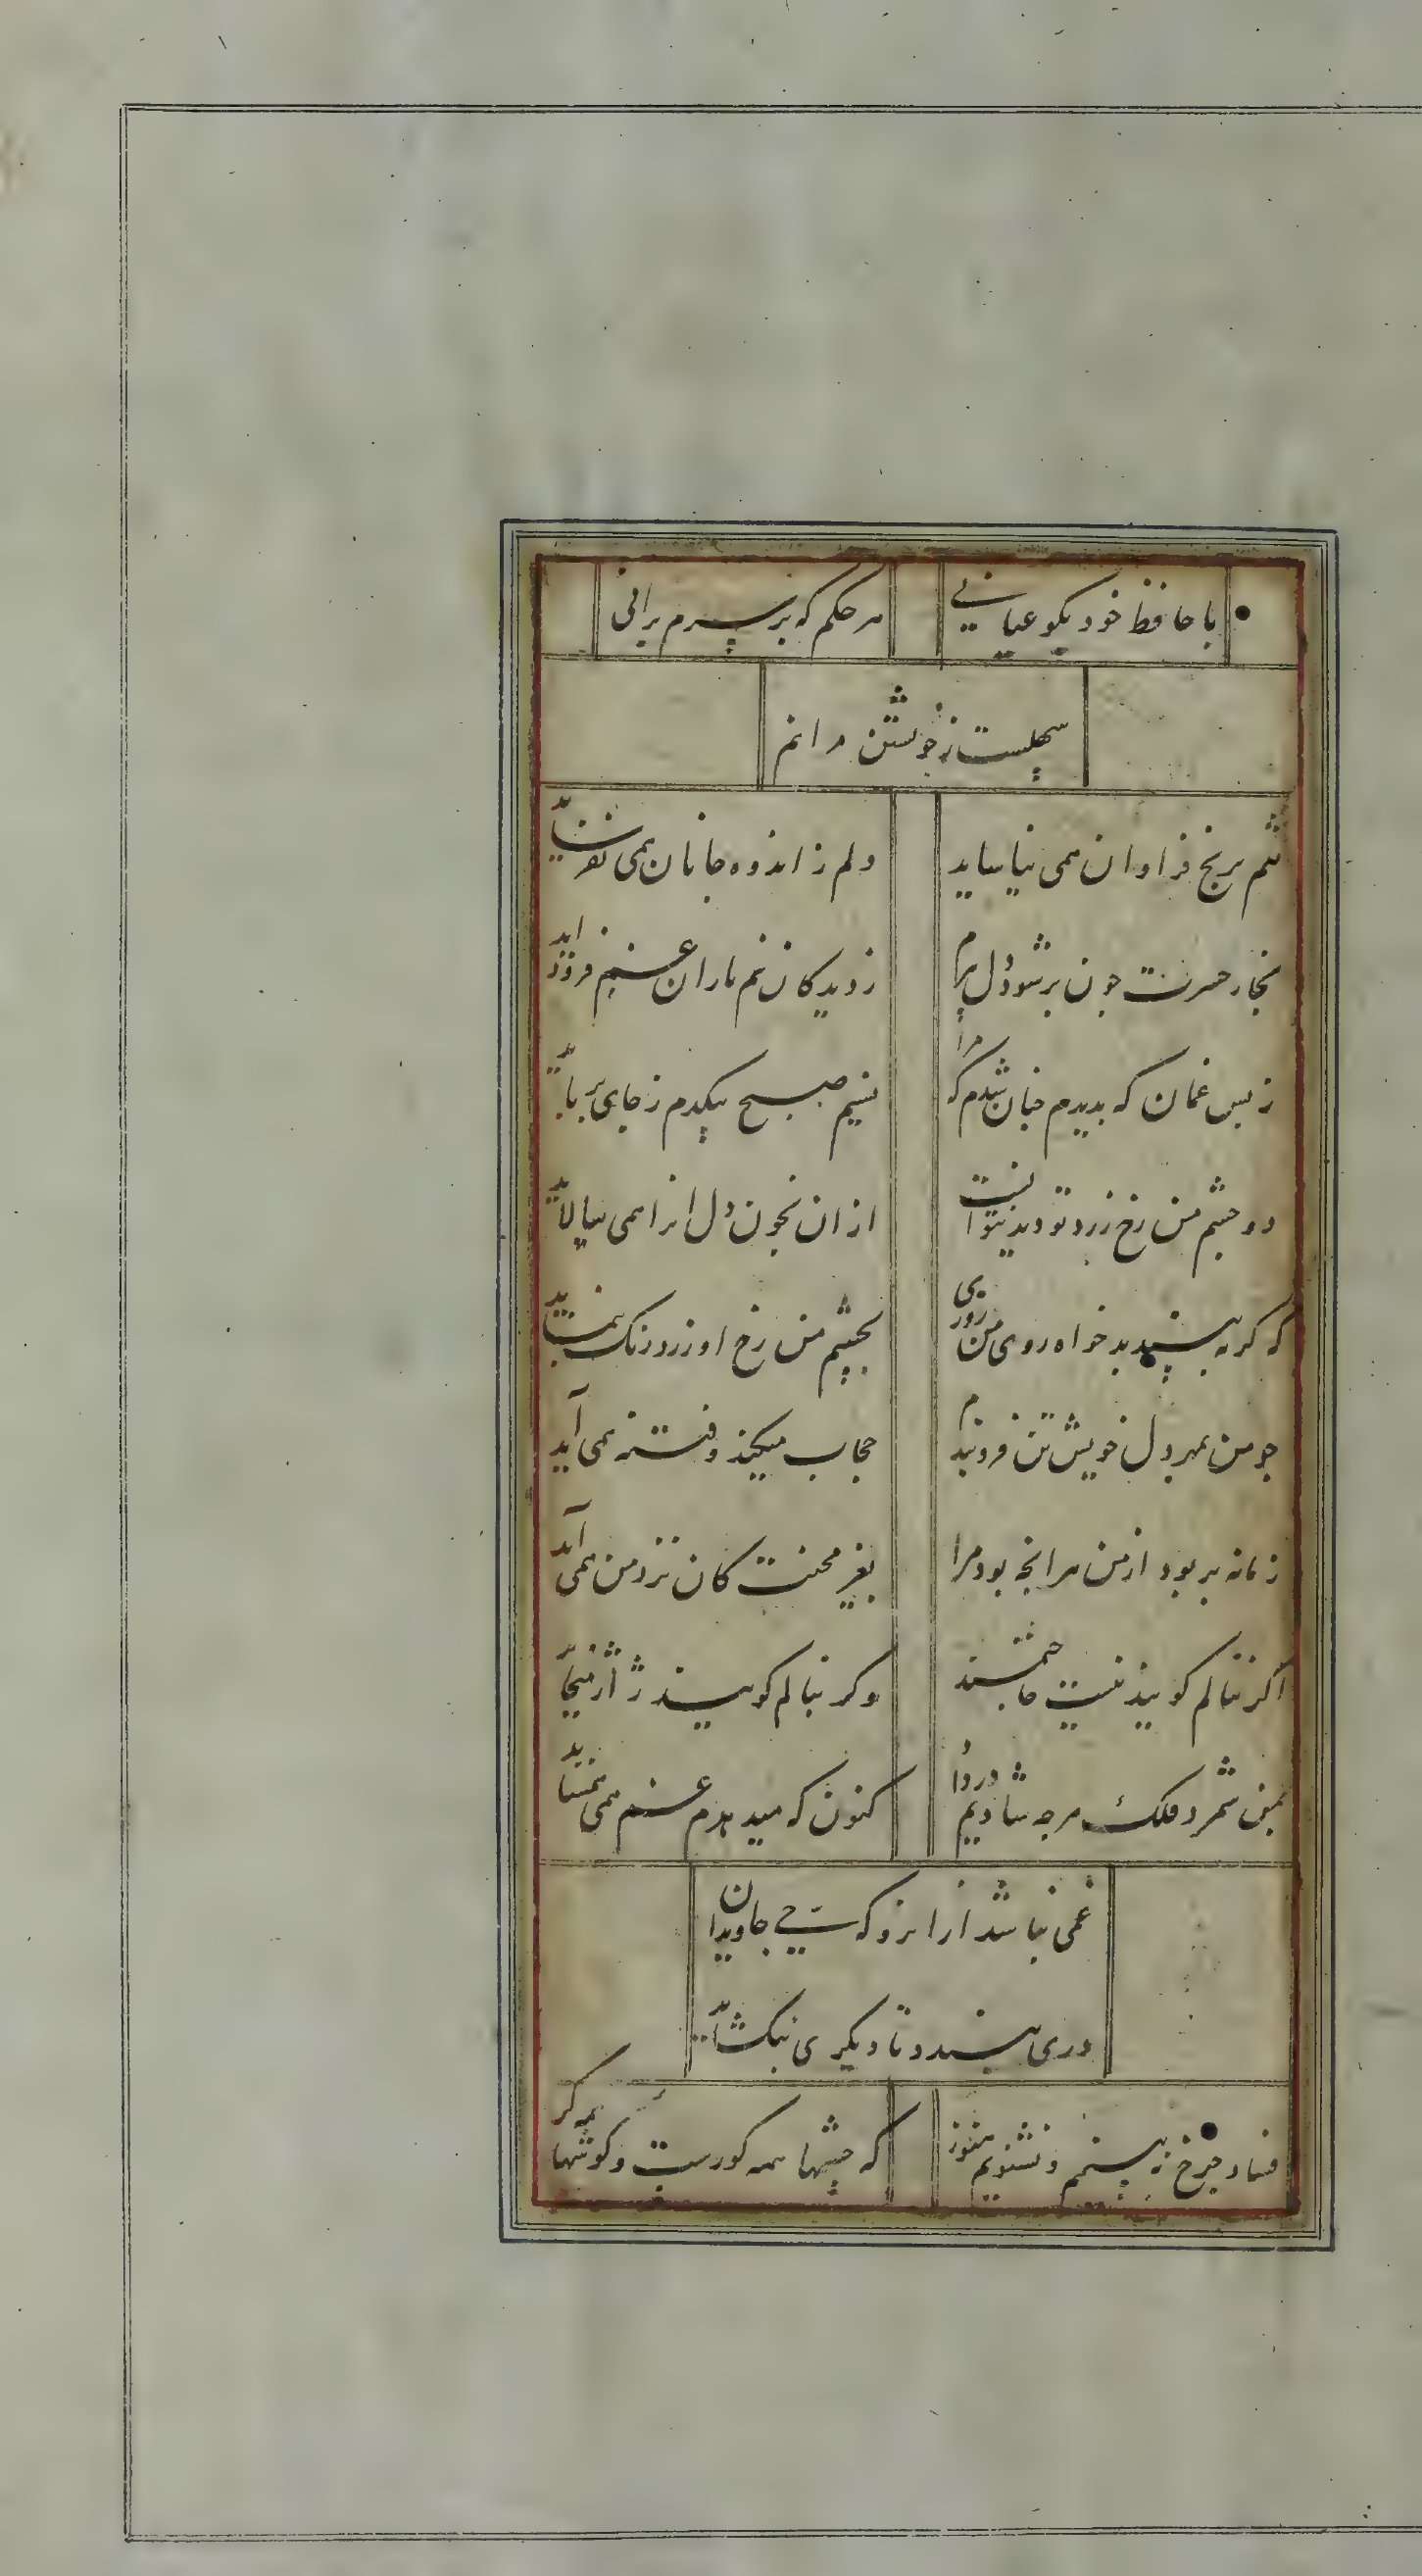 با حافظ خود نکو عیانی هر حکم که بر سرم برانی
سهلست ز خویشتن مرانم
تنم برنج فراوان همی نیاساید دلم ز اندوه جانان همی نفرساید
بخار حسرت چون برشود ز دل بسرم ز دیدکان نم باران غم فرود آید
ز بس غمان که بدیدم چنان شدم که مرا نسیم صبح بیکدم ز جای برباید
دو چشم من رخ زرد تو دید نتوانست از ان بخون دل انرا همی بیالاید
که کر ببیند بدخواه روی من روزی بچشم من رخ او زرد رنک بنماید
چو من بمهر دل خویش تن فرو بندم حجاب میکند و فتنه همی آید
زمانه بربود از من هر انچه بود مرا بغیر محنت کان نزد من همی آید
اکر ننالم کویند نیست حاجتمند وکر بنالم کویند ژاژ میخاید
بمن شمرد فلک هرچه شادیم در داد کنون که میدهدم غم همی بنستاید
غمی نباشد ازیرا نزد که حی جاویدان
دری نبندد تا دیکری نبکشاید
فساد چرخ نبینم و نشنویم هنوز که چشمها همه کورست و کوشها همه کر